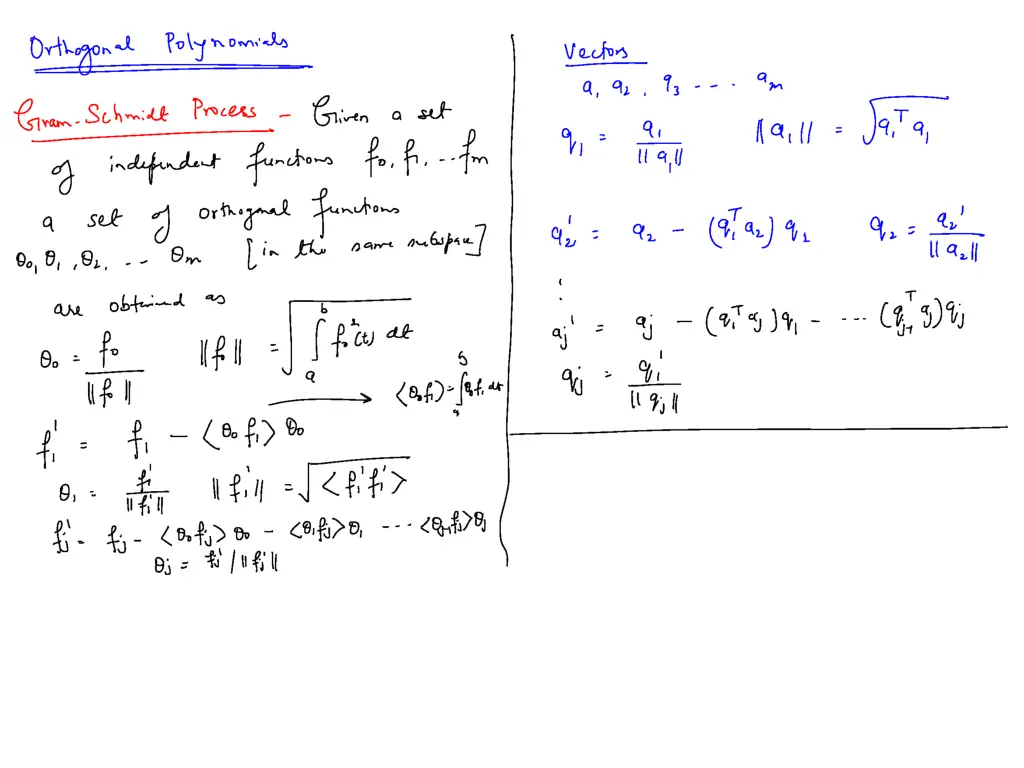 Orthogonal Polynomials
Gram-Schmidt Process - Given a set
of independent functions f₀, f₁, ... fₘ
a set of orthogonal functions
θ₀, θ₁, θ₂, ... θₘ [in the same subspace]
are obtained as
θ₀ = f₀ / ||f₀|| ||f₀|| = √(∫ₐᵇ f₀²(t) dt)
→ ⟨θ₀f₁⟩ = ∫ₐᵇ θ₀f₁ dt
f₁' = f₁ - ⟨θ₀ f₁⟩ θ₀
θ₁ = f₁' / ||f₁'|| ||f₁'|| = √⟨f₁' f₁'⟩
fⱼ' = fⱼ - ⟨θ₀fⱼ⟩θ₀ - ⟨θ₁fⱼ⟩θ₁ ... ⟨θⱼ₋₁fⱼ⟩θⱼ
θⱼ = fⱼ' / ||fⱼ'||
Vectors
a₁ a₂, a₃ --- aₘ
q₁ = a₁ / ||a₁|| ||a₁|| = √(a₁ᵀ a₁)
a₂' = a₂ - (q₁ᵀ a₂) q₁ q₂ = a₂' / ||a₂||
⋮
aⱼ' = aⱼ - (q₁ᵀ aⱼ) q₁ - ... (qⱼ₋₁ᵀ aⱼ) qⱼ
qⱼ = qⱼ' / ||qⱼ||